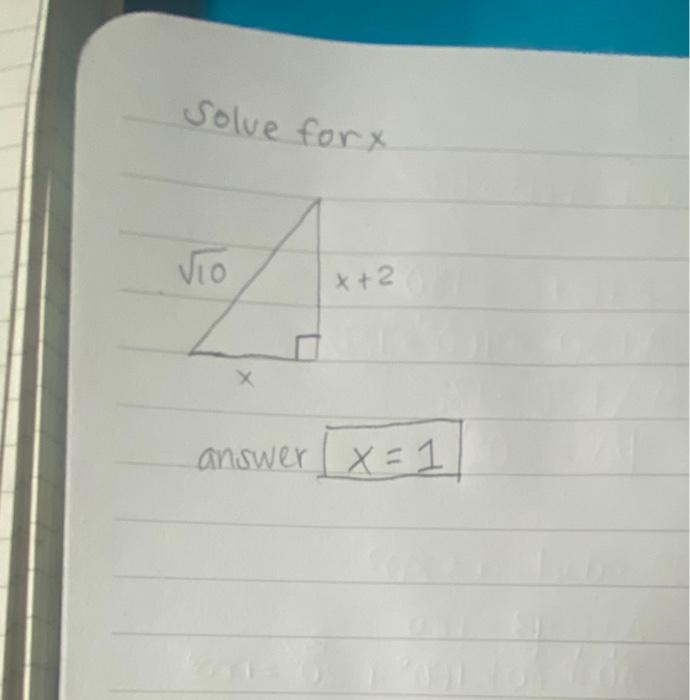 Solve for x
√10
x+2
x
answer x = 1